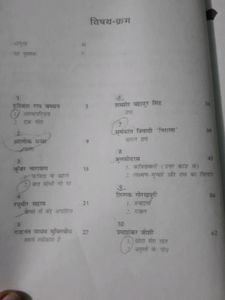 विषय-क्रम
आमुख
iii
1
हरिवंश राय बच्चन
3
1 आत्मपरिचय
2 एक गीत
2
आलोक धन्वा
9
पतंग
3
कुँवर नारायण
15
1 कविता के बहाने
2 बात सीधी थी पर
4
रघुवीर सहाय
21
कैमरे में बंद अपाहिज
5
गजानन माधव मुक्तिबोध
27
सहर्ष स्वीकारा है
6
शमशेर बहादुर सिंह
उषा
7
सूर्यकांत त्रिपाठी 'निराला'
बादल राग
8
तुलसीदास
1 कवितावली (उत्तर कांड से)
2 लक्ष्मण-मूर्च्छा और राम का विलाप
9
फ़िराक गोरखपुरी
1 रुबाइयाँ
2 गज़ल
10
उमाशंकर जोशी
1 छोटा मेरा खेत
2 बगुलों के पंख